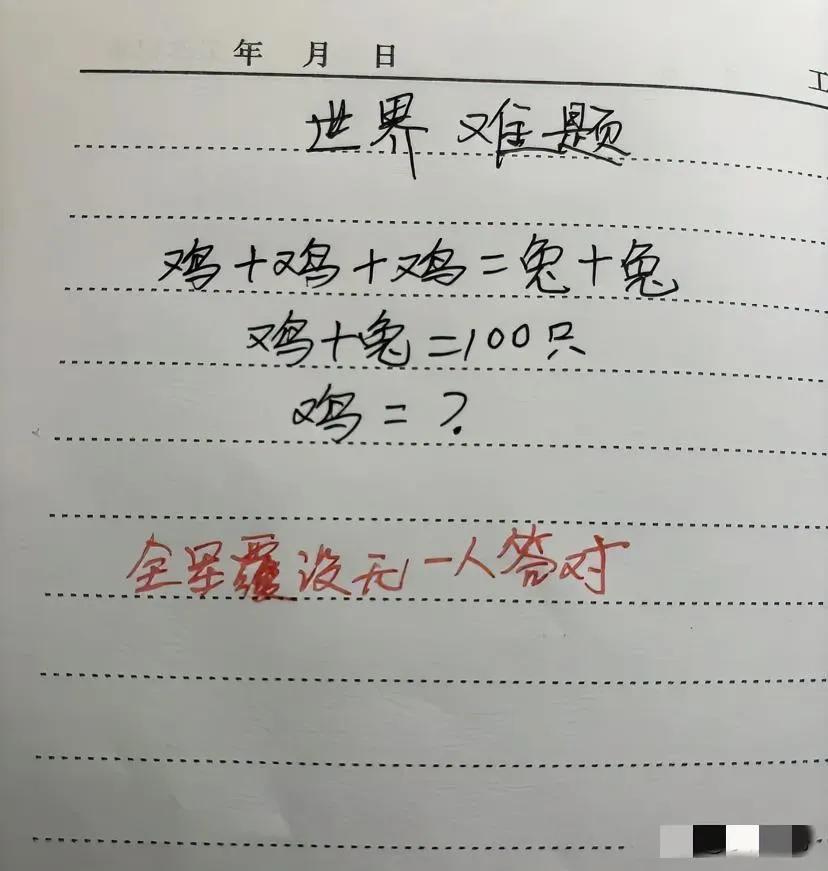 年 月 日
世界 难题
鸡+鸡+鸡=兔+兔
鸡+兔=100只
鸡=?
全军覆没无一人答对